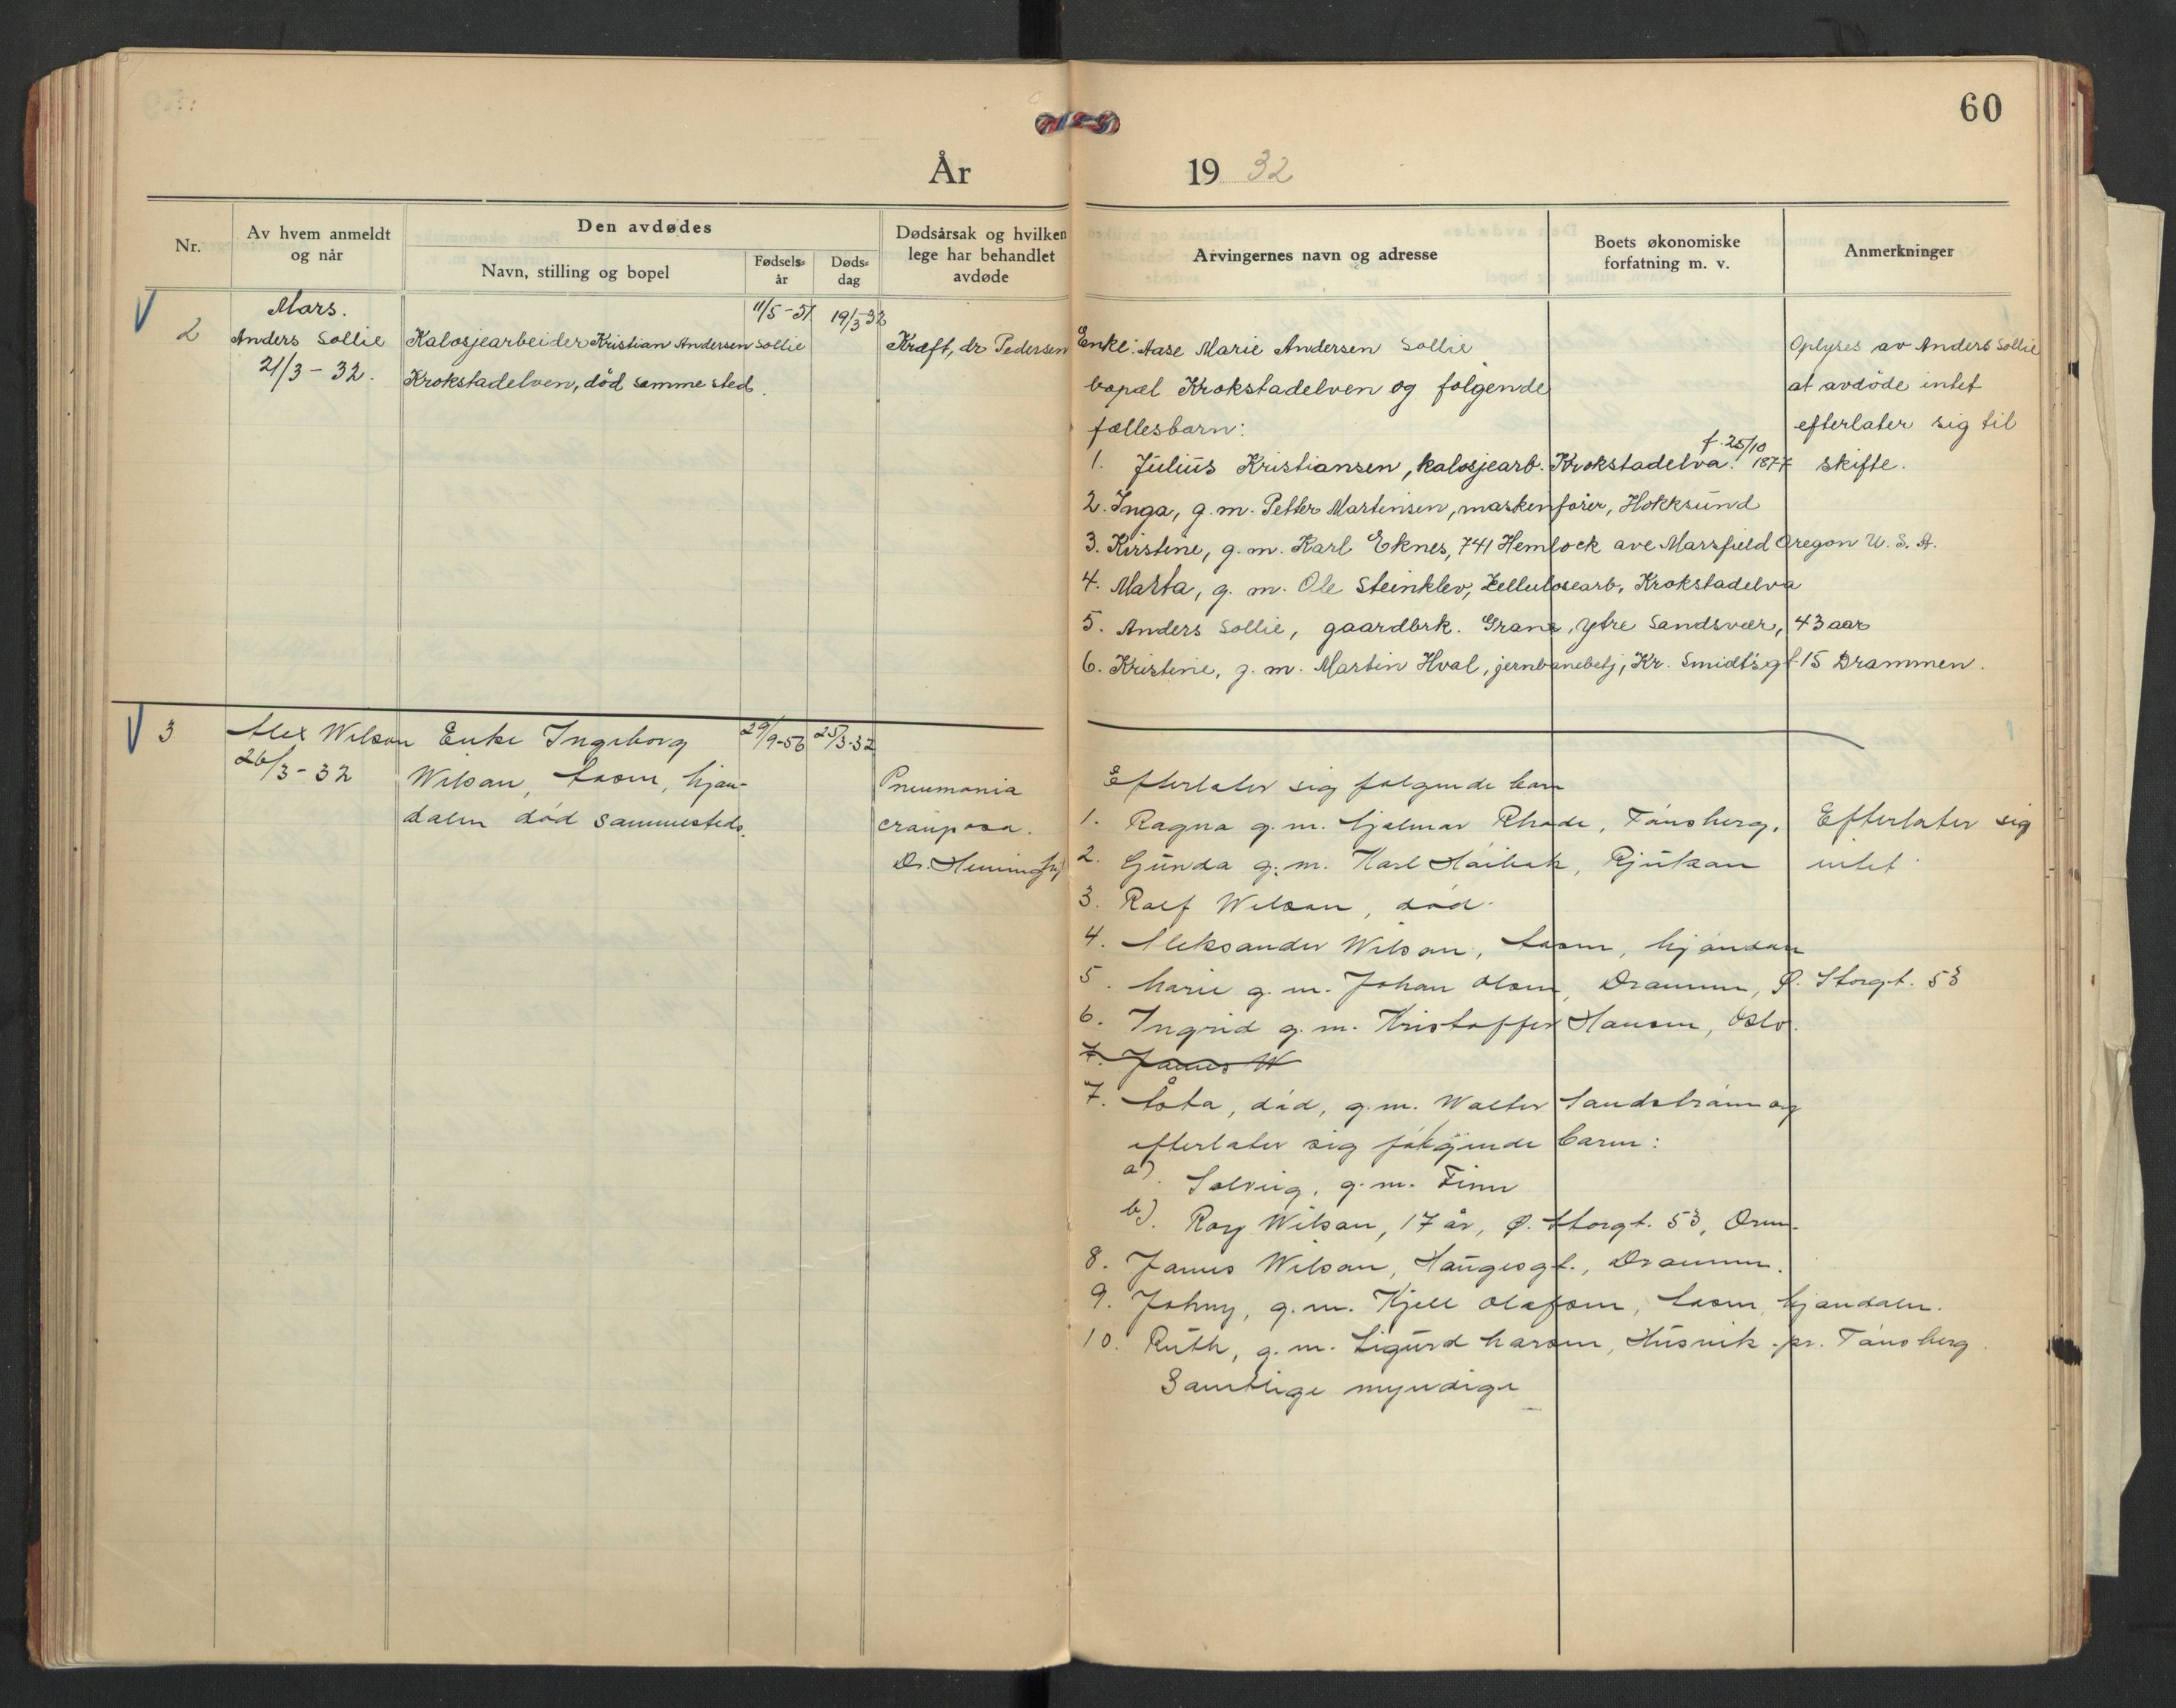 60
År 19 32
Nr.
Av hvem anmeldt
og når
Den avdødes
Navn, stilling og bopel
Fødsels-
år
Døds-
dag
Dødsårsak og hvilken
lege har behandlet
avdøde
Arvingernes navn og adresse
Boets økonomiske
forfatning m. v.
Anmerkninger
Mars.
2
Anders Sollie
21/3 - 32.
Kalosjearbeider Kristian Andersen Sollie
Krokstadelven, død samme sted.
11/5-51
19/3-32
Kræft, dr Pedersen
Enke: Aase Marie Andersen Sollie
bopæl Krokstadelven og følgende
fællesbarn:
1. Julius Kristiansen, kalosjearb. Krokstadelva. f. 25/10 1877
2. Inga, g.m. Petter Martinsen, maskenfører, Hokksund
3. Kirstine, g.m. Karl Eknes, 741 Hemlock ave Marsfield Oregon U.S.A.
4. Marta, g. m. Ole Steinklev, Zellulosearb, Krokstadelva
5. Anders Sollie, gaardbrk. Grane, Ytre Sandsvær, 43 aar
6. Kristine, g. m. Martin Hval, jernbanebetj, Kr. Smidtsgt 15 Drammen.
Oplyses av Anders Sollie
at avdøde intet
efterlater sig til
skifte.
3
Alex Wilson
26/3-32
Enke Ingeborg
Wilson, Åsen, Mjøn-
dalen død sammesteds.
29/9-56
25/3-32
Pneumonia
crouposa.
Dr.
Efterlater sig følgende barn
1. Ragna g.m. Hjalmar Rhode, Tønsberg.
2. Gunda g.m. Karl Rjukan
3. Rolf Wilson, død.
4. Aleksander Wilson, Åsen, Mjøndalen
5. Marie g.m. Johan Olsen, Drammen, Ø. Storgt. 53
6. Ingrid g.m. Kristoffer Hansen, Oslo.
7. James W
7. Åsta, død, g.m. Walter Sandstrøm og
efterlater sig følgende barn:
a). Solveig, g.m. Finn
b). Roy Wilson, 17 år, Ø. Storgt. 53, Drm.
8. James Wilson, Haugesgt., Drammen.
9. Johny, g.m. Kjell Olafsen, Åsen, Mjøndalen.
10. Ruth, g.m. Sigurd Larsen, Husvik pr. Tønsberg.
Samtlige myndige
Efterlater sig
intet.